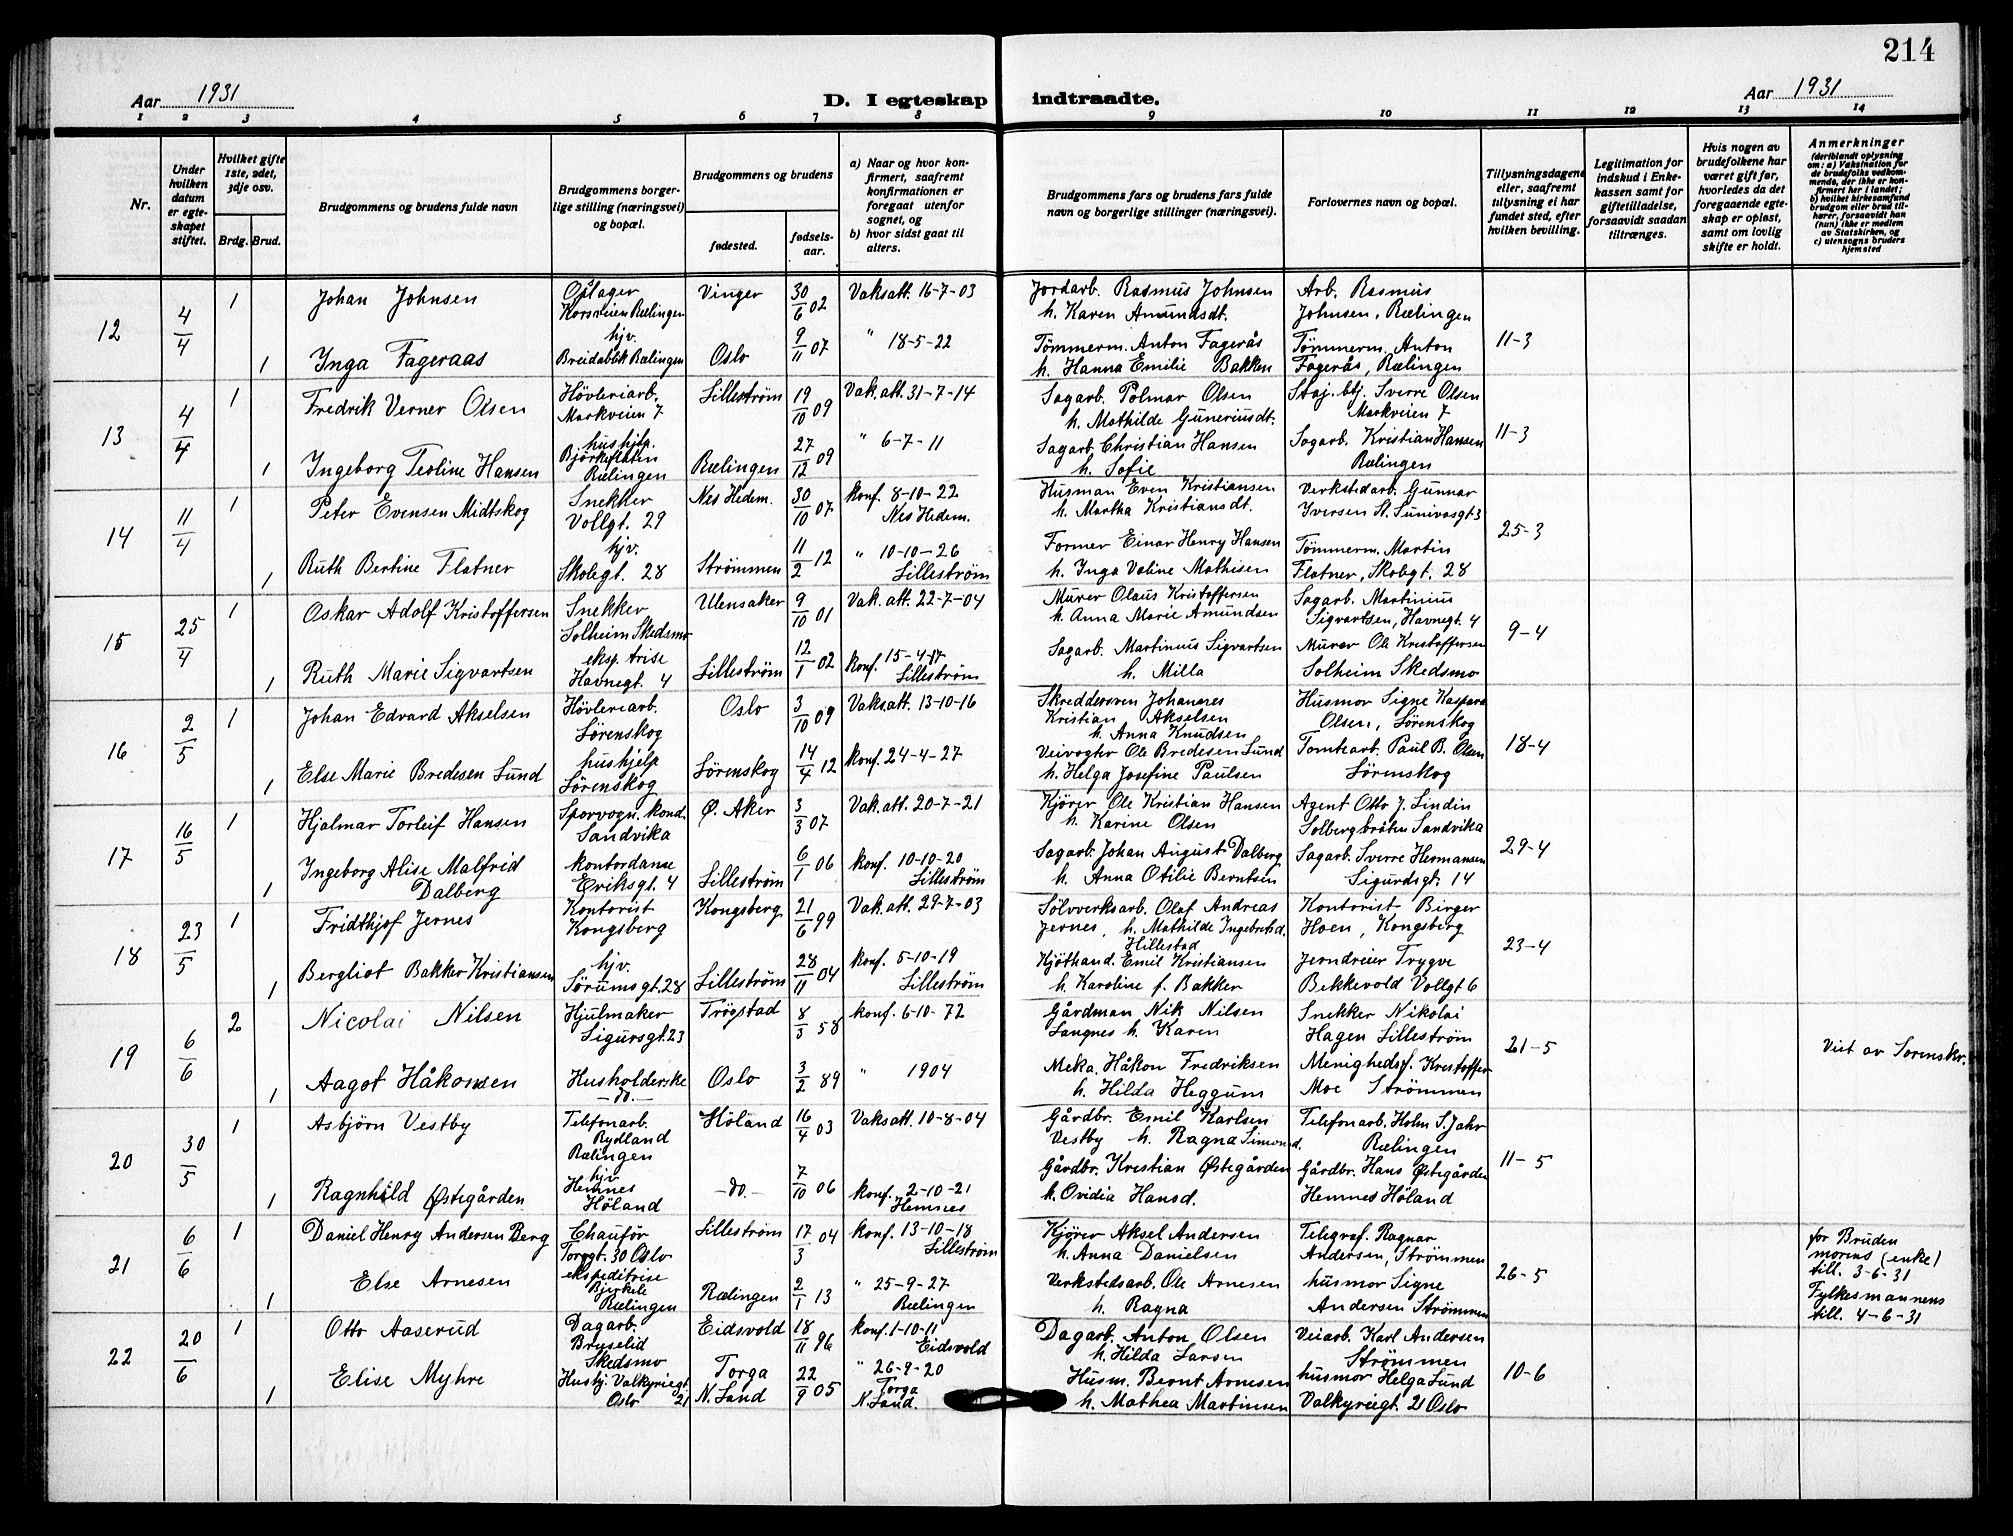 214
Aar 1931
D. I egteskap indtraadte.
Aar 1931
1 2 3 4 5 6 7 8 9 10 11 12 13 14
Nr.
Under hvilken datum er egte-skapet stiftet.
Hvilket gifte 1ste, 2det, 3dje osv.
Brdg. Brud.
Brudgommens og brudens fulde navn
Brudgommens borger-lige stilling (næringsvei) og bopæl.
Brudgommens og brudens
fødested.
fødsels-aar.
a) Naar og hvor kon-firmert, saafremt konfirmationen er foregaat utenfor sognet, og
b) hvor sidst gaat til alters.
Brudgommens fars og brudens fars fulde navn og borgerlige stillinger (næringsvei).
Forlovernes navn og bopæl.
Tillysningsdagene eller, saafremt tillysning ei har fundet sted, efter hvilken bevilling.
Legitimation for indskud i Enke-kassen samt for giftetilladelse, forsaavidt saadan tiltrænges.
Hvis nogen av brudefolkene har været gift før, hvorledes da det foregaaende egte-skap er opløst, samt om lovlig skifte er holdt.
Anmerkninger
(deriblandt oplysning om: a) Vaksination for de brudefolks vedkom-mende, der ikke er kon-firmert her i landet; b) hvilket kirkesamfund brudgom eller brud til-hører, forsaavidt han (hun) ikke er medlem av Statskirken, og c) utensogns bruders hjemsted
12 4/4 1 Johan Johnsen Oplager Korsveien Rælingen Vinger 30/6 02 Vaksatt. 16-7-03 Jordarb. Rasmus Johnsen h. Karen Amundsdt. Arb. Rasmus Johnsen, Rælingen 11-3
1 Inga Fageraas hjv. Breidablik Rælingen Oslo 9/11 07 " 18-5-22 Tømmerm. Anton Fagerås h. Hanna Emilie Bakken Tømmerm. Anton Fagerås, Rælingen
13 4/4 1 Fredrik Verner Olsen Høvleriarb. Markveien 7 Lillestrøm 19/10 09 Vak. att. 31-7-14 Sagarb. Polmar Olsen h. Mathilde Guneriusdt. Sverre Olsen Markveien 7 11-3
1 Ingeborg Teoline Hansen hushjlp. Rælingen Rælingen 27/12 09 " 6-7-11 Sagarb. Christian Hansen h. Sofie Sagarb. Kristian Hansen Rælingen
14 11/4 1 Peter Evensen Midtskog Snekker Vollgt. 29 Nes Hedem. 30/10 07 konf. 8-10-22 Nes Hedem. Husman Even Kristiansen h. Martha Kristiansdt. Verkstedarb. Gunnar Iversen St. Sunivasgt 3 25-3
1 Ruth Bertine Flatner hjv. Skolegt. 28 Strømmen 11/2 12 " 10-10-26 Lillestrøm Former Einar Henry Hansen h. Inga Valine Mathisen Tømmerm. Martin Flatner, Skolegt. 28
15 25/4 1 Oskar Adolf Kristoffersen Snekker Solheim Skedsmo Ulensaker 9/10 01 Vak. att. 22-7-04 Murer Olaus Kristoffersen h. Anna Marie Amundsen Sagarb. Martinius Sigvartsen, Havnegt. 4 9-4
1 Ruth Marie Sigvartsen eksp. trise Havnegt. 4 Lillestrøm 12/1 02 konf. 15-4-17 Lillestrøm Sagarb. Martinius Sigvartsen h. Milla Murer Ole Kristoffersen Solheim Skedsmo
16 2/5 1 Johan Edvard Akselsen Høvleriarb. Lørenskog Oslo 3/10 09 Vaksatt. 13-10-16 Skreddersven Johannes Kristian Akselsen h. Anna Knudsen Husmor Signe Kaspara Olsen, Lørenskog 18-4
1 Else Marie Bredesen Lund hushjelp Lørenskog Lørenskog 14/4 12 konf. 24-4-27 Veivogter Ole Bredesen Lund h. Helga Josefine Paulsen Tomtearb. Paul B. Olsen Lørenskog
17 16/5 1 Hjalmar Torleif Hansen Sporvogn. kond. Sandvika Ø. Aker 3/3 07 Vak. att. 20-7-21 Kjører Ole Kristian Hansen h. Karine Olsen Agent Otto J. Lindin Solbergbråten Sandvika 29-4
1 Ingeborg Alise Malfrid Dalberg kontordame Eriksgt. 4 Lillestrøm 6/1 06 konf. 10-10-20 Lillestrøm Sagarb. Johan August Dalberg h. Anna Otilie Berntsen Sagarb. Sverre Hermansen Sigurdsgt. 14
18 23/5 1 Fridthjof Jernes Kontorist Kongsberg Kongsberg 21/6 99 Vak. att. 29-7-03 Sølvverksarb. Olaf Andreas Jernes, h. Mathilde Ingebretsd. Hillestad Kontorist Birger Hoen, Kongsberg 23-4
1 Bergliot Bakker Kristiansen hjv. Sørumsgt. 28 Lillestrøm 28/11 04 konf. 5-10-19 Lillestrøm Kjøthand. Emil Kristiansen h. Karoline f. Bakker Jerndreier Trygve Bekkevold Vollgt 6
19 6/6 2 Nicolai Nilsen Hjulmaker Sigursgt. 23 Trøgstad 8/3 58 konf. 6-10-72 Gårdman Nik Nilsen Langnes h. Karen Snekker Nikolai Hagen Lillestrøm 21-5 Viet av Sorenskr.
1 Aagot Håkonsen Husholderske -do.- Oslo 3/2 89 " 1904 Meka. Håkon Fredriksen h. Hilda Heggum Menighedsf. Kristoffer Moe Strømmen
20 30/5 1 Asbjørn Vestby Telefonarb. Rydland Rælingen Høland 16/4 03 Vaksatt. 10-8-04 Gårdbr. Emil Karlsen Vestby h. Ragna Simonsd. Telefonarb. Holm S. Jahr Rælingen 11-5
1 Ragnhild Østegården hjv Hemnes Høland -do.- 7/10 06 konf. 2-10-21 Hemnes Gårdbr. Kristian Østegården h. Ovidia Hansd. Gårdbr. Hans Østegården Hemnes Høland
21 6/6 1 Daniel Henry Andersen Berg Chaufør Torggt. 30 Oslo Lillestrøm 17/3 04 konf. 13-10-18 Lillestrøm Kjører Aksel Andersen h. Anna Danielsen Telegraf. Ragnar Andersen, Strømmen 26-5 for Bruden morens (enke) till. 3-6-31 Fylkesmannens till. 4-6-31
1 Else Arnesen ekspeditrise Bjerkeli Rælingen Rælingen 2/1 13 " 25-9-27 Rælingen Verkstedsarb. Ole Arnesen h. Ragna husmor Signe Andersen Strømmen
22 20/6 1 Otto Aaserud Dagarb. Bryselid Skedsmo Eidsvold 18/11 96 konf. 1-10-11 Eidsvold Dagarb. Anton Olsen h. Hilda Larsen Veiarb. Karl Andersen Strømmen 10-6
1 Elise Myhre Husbj. Valkyriegt. 21 Oslo Torga N. Land 22/9 05 " 26-9-20 Torga N. Land. Husm. Bernt Arnesen h. Mathea Martinsen husmor Helga Lund Valkyriegt. 21 Oslo